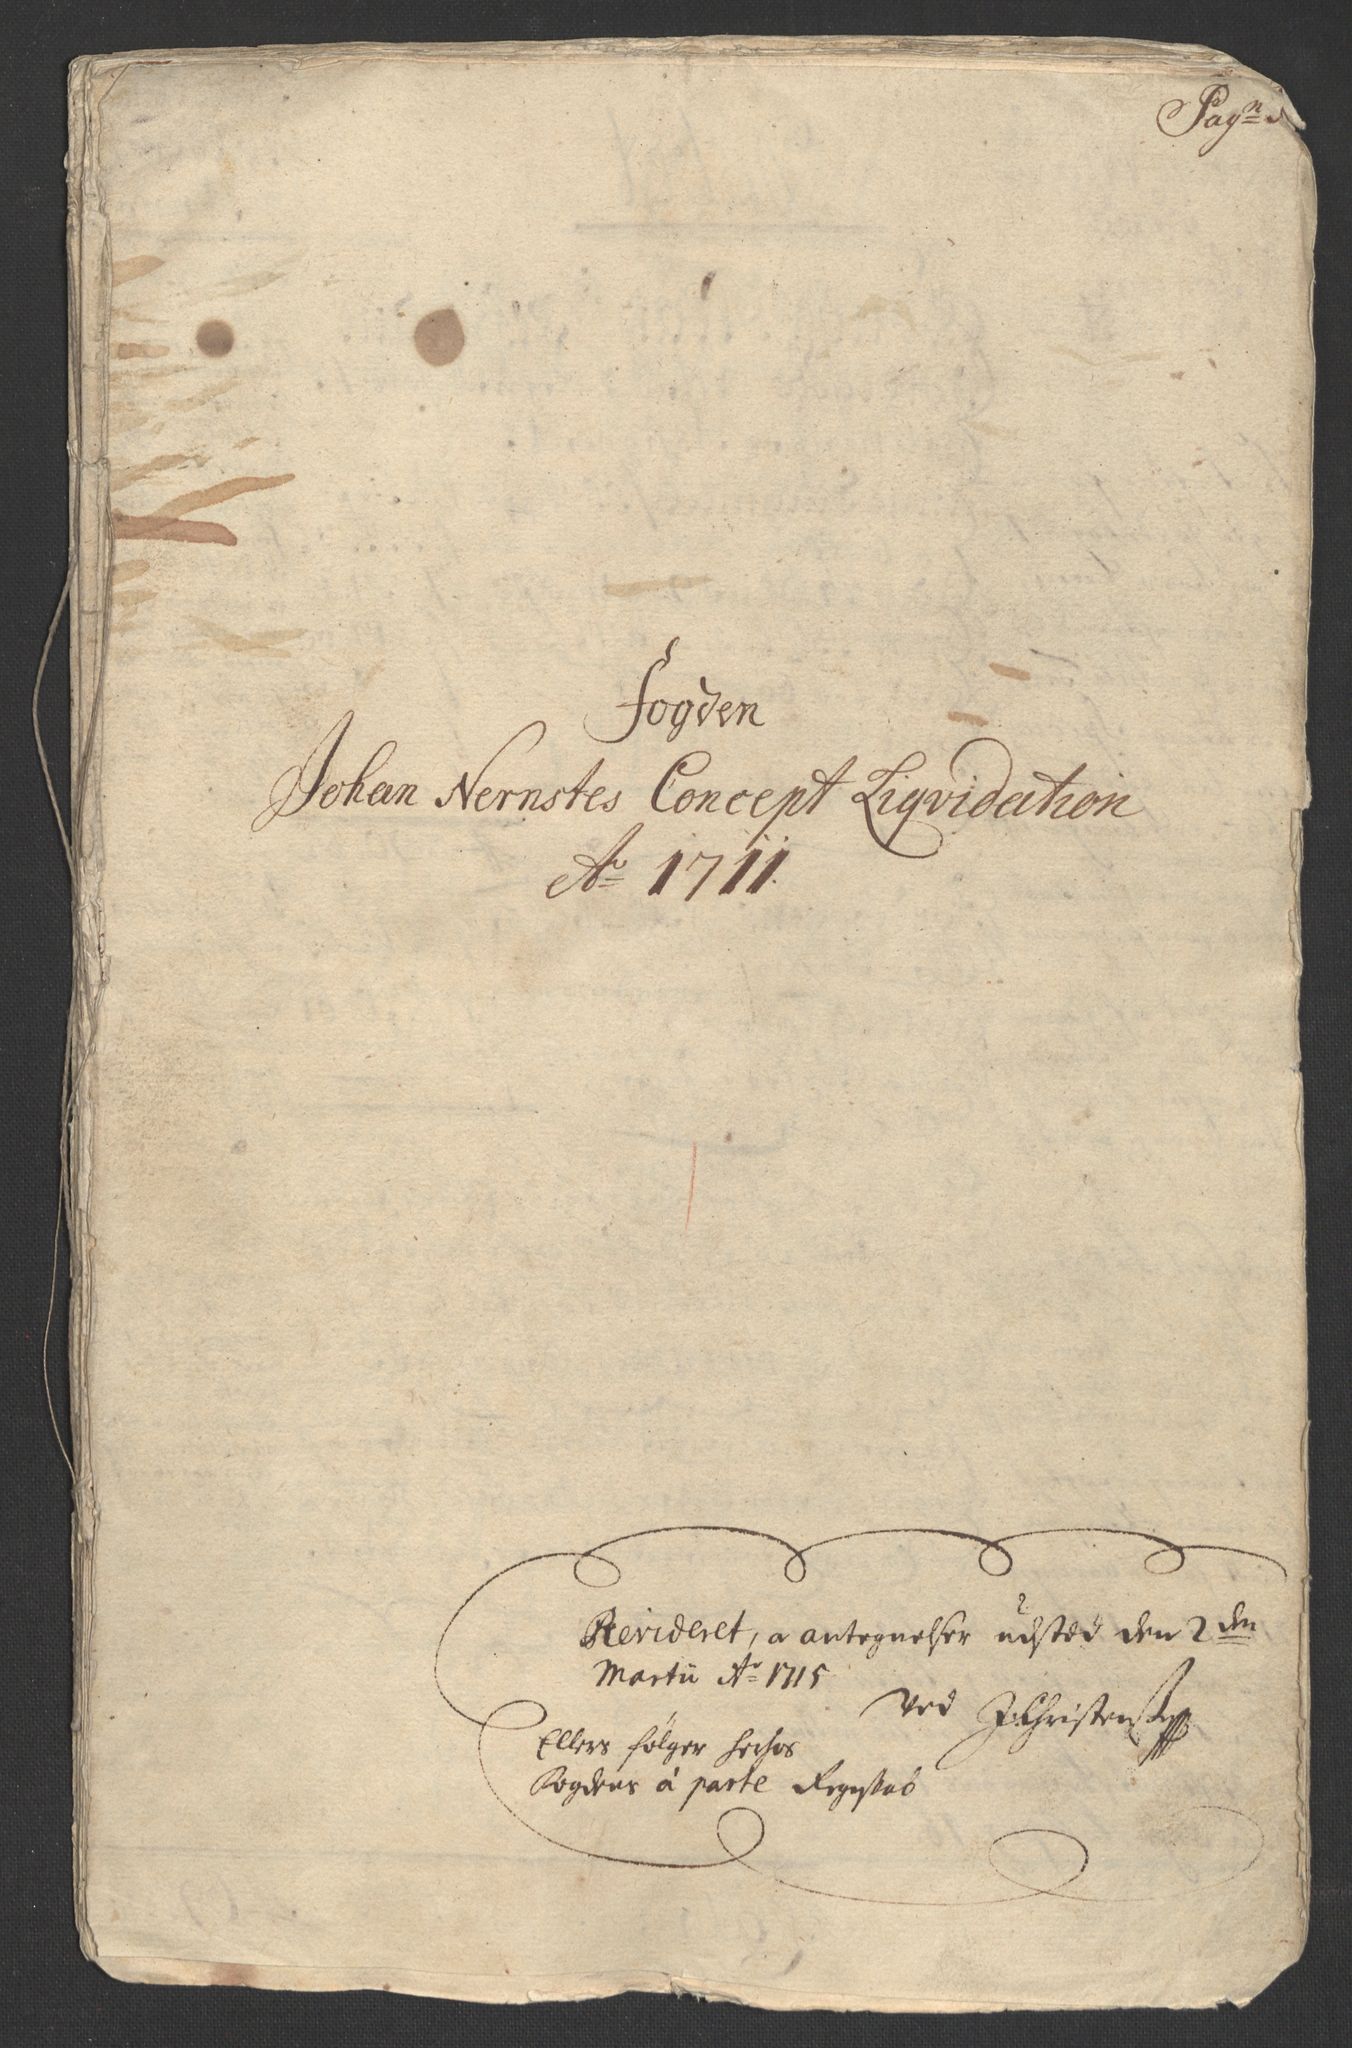 Pagn
Fogden
Johan Nernstes Concept Liqvidation
Ao 1711.
Revideret, a antegnelser udsted den 2den
Martii Ao 1715
Ved JChristens
Ellers følger
Fogdens á parte Regnskab